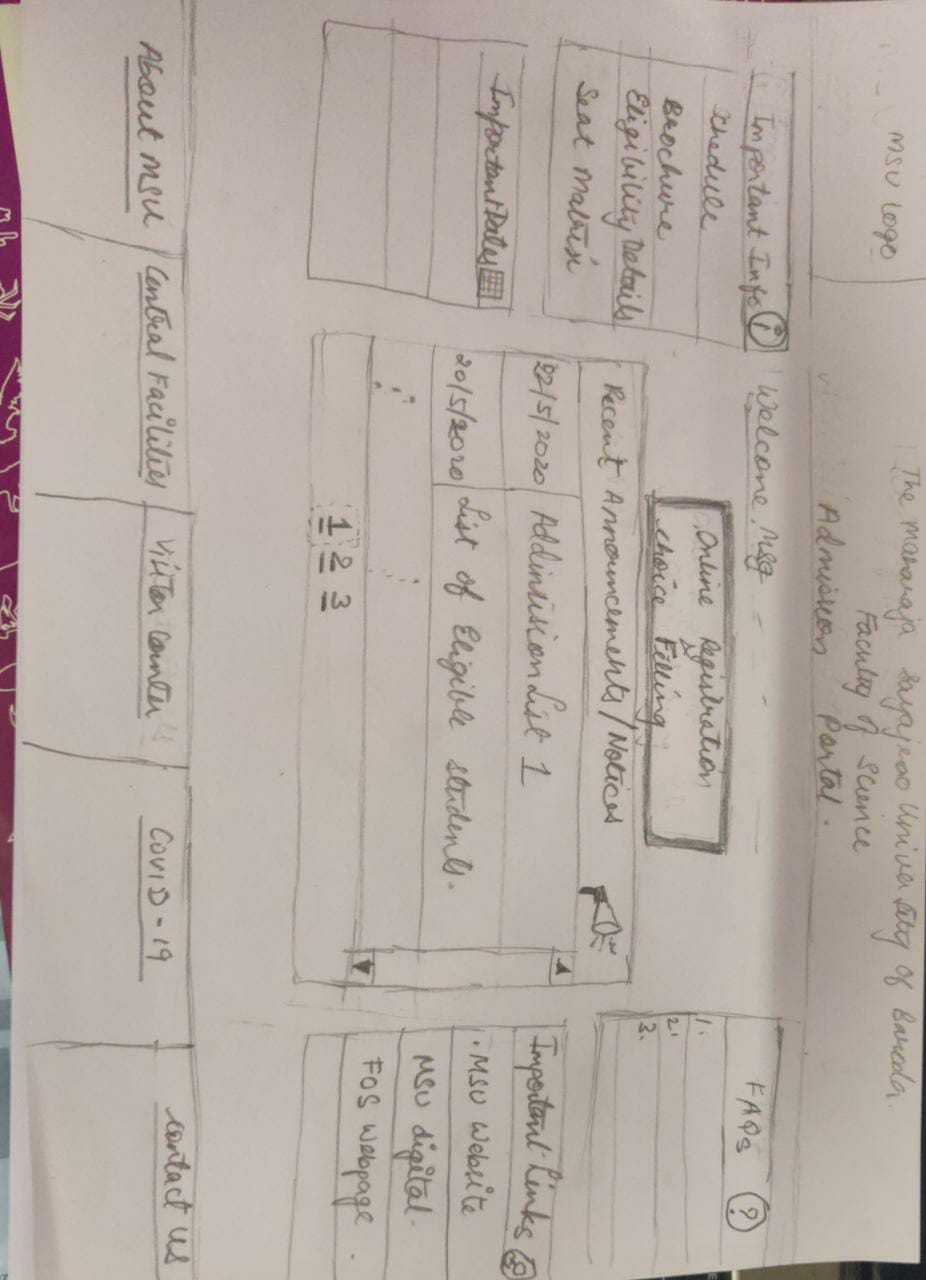 MSU Logo
The maharaja sayajirao University of Baroda.
Faculty of Science
Admission Portal.
Important Info i
Schedule
Brochure
Eligibility Details
Seat Matrix
Important Dates
Welcome Msg
Online Registration
&
choice Filling
Recent Announcements/Notices
22/5/2020 Addmission List 1
20/5/2020 List of Eligible students.
1 2 3
FAQs ?
1.
2.
3.
Important Links
. MSU Website
MSU digital.
FOS Webpage.
About MSU
Central Facilities
Visitor Counter
COVID-19
Contact Us